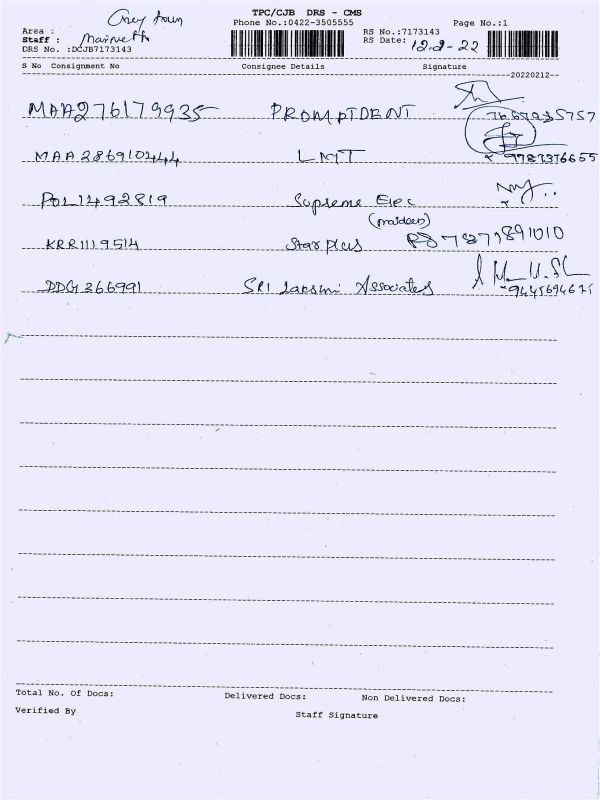 TPC/CJB DRS - CMS
Phone No.:0422-3505555
Page No.:1
Area :
Staff :
DRS No. :DCJB7173143
RS No.:7173143
RS Date: 12-2-22
S No Consignment No Consignee Details Signature
20220212
MAA276179935 PROMPTDENT
LMT 9787376655
MAA286910444
POL1492819 Supreme Elec
(maideen)
KRR1119514 Star plus 7871891010
DDG366991 SRI Laksmi Associates
Total No. Of Docs: Delivered Docs: Non Delivered Docs:
Verified By Staff Signature